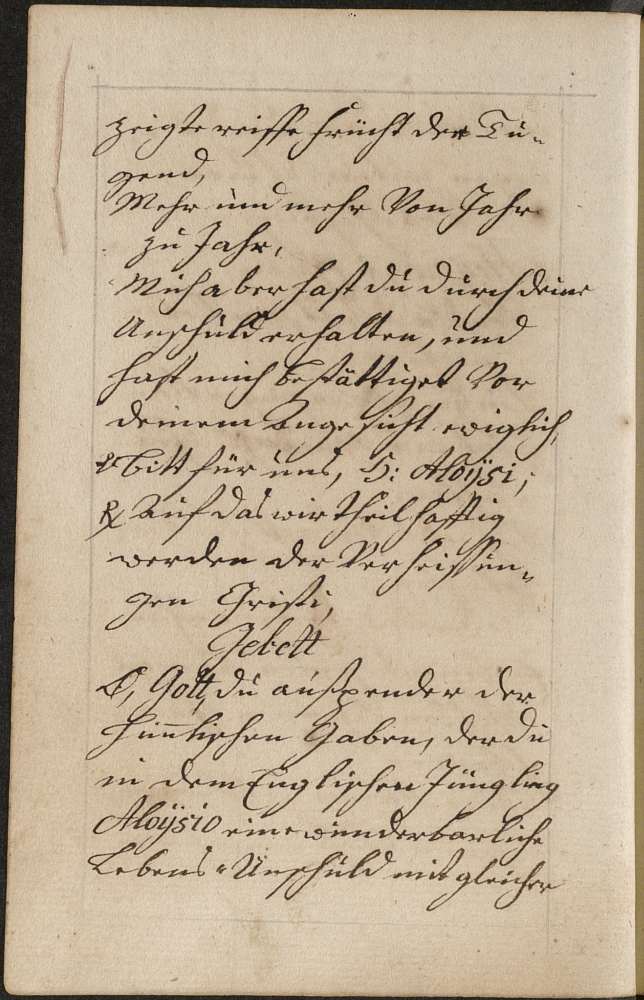 zeigte reiffe frücht der Tu-
gend,
Mehr und mehr Von Jahr
zu Jahr,
Mich aber hast du durch deine
Unschuld erhalten, und
hast mich bestättiget Vor
deinem Angesicht ewiglich,
℣ Bitt für uns, H: Aloÿsi;
℟ Auf das wir theilhafftig
werden der Verheissun-
gen Christi,
Gebett
O, Gott, du ausspender der
himlischen Gaben, der du
in dem Englischen Jüngling
Aloÿsio eine wunderbarliche
Lebens-Unschuld mit gleicher